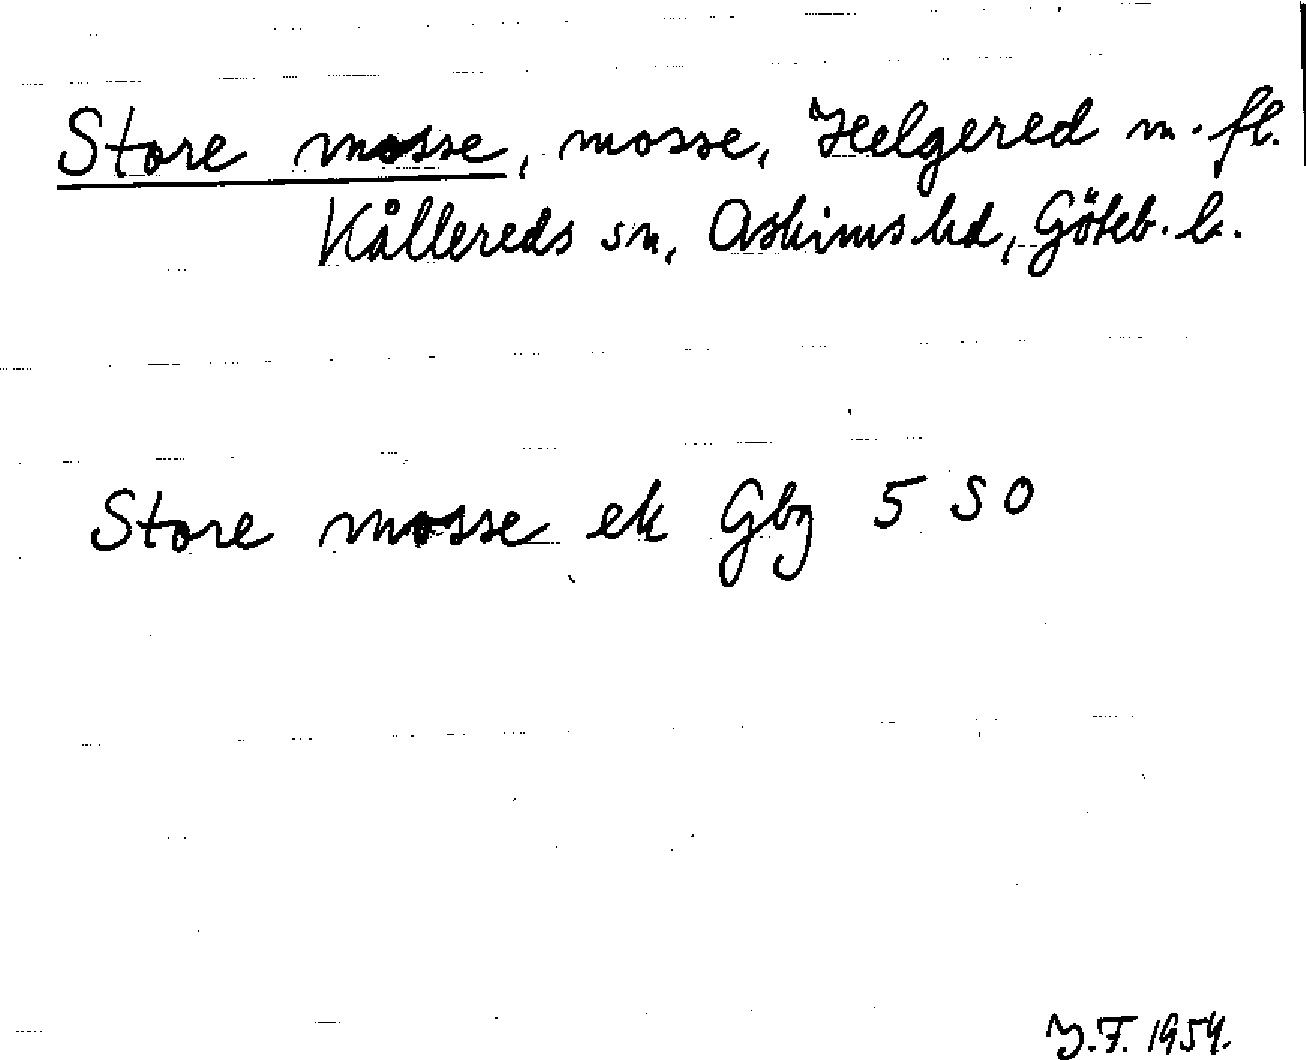 Store mosse, mosse, Helgered m. fl.
Kållereds sn, Askims hd, Göteb. l.
Store mosse ek Gbg 5 SO
Y.F. 1954.